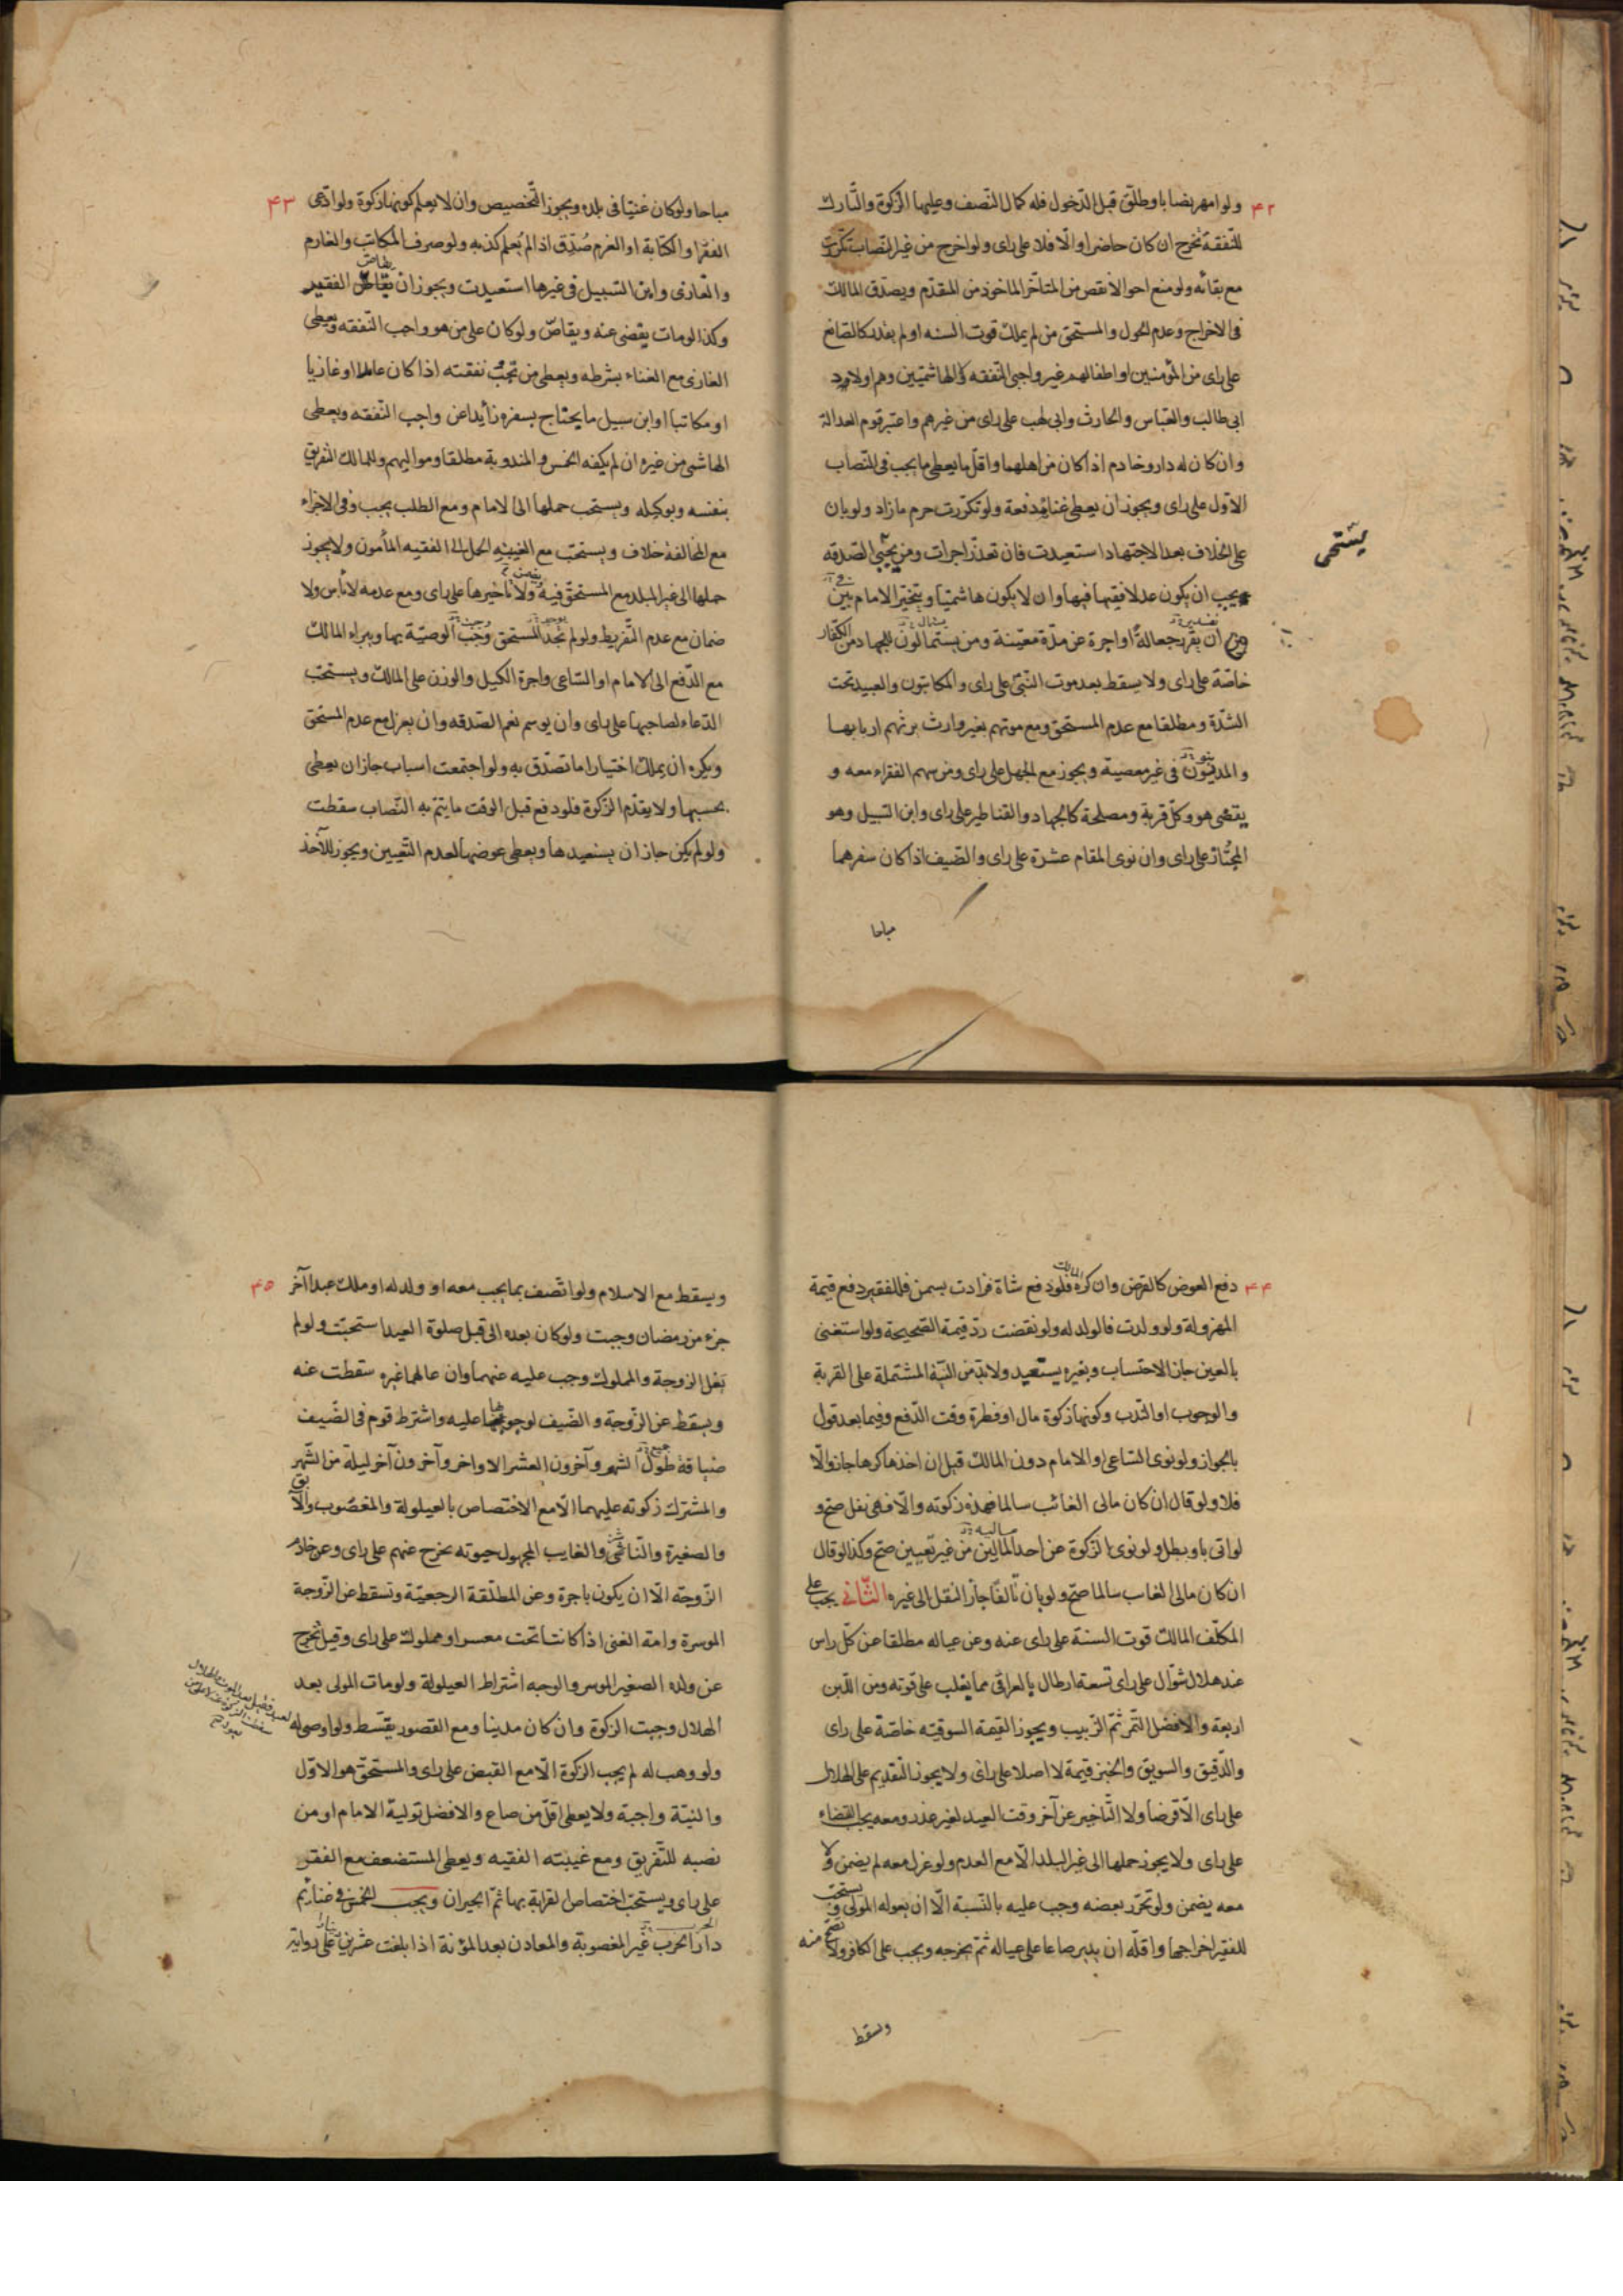 ۴۲
ولو امهر نصابا وطلق قبل الدخول فله كمال النصف وعليها الزكوة والتارك
للنفقة تخرج ان كان حاضرا والا فلا على راى ولو اخرج من غير النصاب تكررت
مع بقائه ولو منع احوالا نقص من المتاخر الماخوذ من المتقدم ويصدق المالك
فى الاخراج وعدم الحول والمستحق من لم يملك قوت السنه او لم يقدر كالصانع
على راى من المؤمنين او اطفالهم غير واجبى النفقه ولا الهاشميين وهم اولاد
ابى طالب والعباس والحارث وابى لهب على راى من غيرهم واعتبر قوم العدالة
وان كان له دار وخادم اذا كان من اهلهما واقل ما يعطى ما يجب فى النصاب
الاول على راى ويجوز ان يعطى غناه دفعة ولو تكررت حرم ما زاد ولو بان
على الخلاف بعد الاجتهاد استعيدت فان تعذر اجزات ومن يجبى الصدقه
يجب ان يكون عدلا فقيها فيها وان لا يكون هاشميا ويتخير الامام بين
ان يقرر جعالة او اجرة عن مدة معينة ومن يستمالون للجهاد من الكفار
خاصة على راى ولا يسقط بعد موت النبى على راى والمكاتبون والعبيد تحت
الشدة ومطلقا مع عدم المستحق ومع موتهم بغير وارث يرثهم اربابها
والمدينون فى غير معصية ويجوز مع الجهل على راى ومن سهم الفقراء معه و
يقضى هو وكل قربة ومصلحة كالجهاد والقناطير على راى وابن السبيل وهو
المجتاز على راى وان نوى المقام عشرة على راى والضيف اذا كان سفرهما
مباحا
يستحى
۴۳
مباحا ولو كان غنيا فى بلده ويجوز التخصيص وان لا يعلم كونها زكوة ولو ادعى
الفقر او الكتابة او الغرم صدق اذا لم يعلم كذبه ولو صرف المكاتب والغارم
والغازى وابن السبيل فى غيرها استعيدت ويجوز ان يقاص الفقير
وكذا لو مات يقضى عنه ويقاص ولو كان على من هو واجب النفقه ويعطى
الغازى مع الغناء بشرطه ويعطى من تجب نفقته اذا كان عاملا او غازيا
او مكاتبا او ابن سبيل ما يحتاج بسفره زايدا عن واجب النفقه ويعطى
الهاشمى من غيره ان لم يكفه الخمس والمندوبة مطلقا ومواليهم وللمالك التفريق
بنفسه وبوكيله ويستحب حملها الى الامام ومع الطلب يجب وفى الاجزاء
مع المخالفة خلاف ويستحب مع الغيبة الحمل الى الفقيه المأمون ولا يجوز
حملها الى غير البلد مع المستحق فيه ولا تاخيرها على راى ومع عدمه لا باس ولا
ضمان مع عدم التفريط ولو لم تجد المستحق وجب الوصية بها ويبراء المالك
مع الدفع الى الامام او الساعى واجرة الكيل والوزن على المالك ويستحب
الدعاء لصاحبها على راى وان يوسم نعم الصدقه وان يعزل مع عدم المستحق
ويكره ان يملك اختيارا ما تصدق به ولو اجتمعت اسباب جاز ان يعطى
بحسبها ولا يقدم الزكوة فلو دفع قبل الوقت ما يتم به النصاب سقطت
ولو لم يكن جاز ان يستعيدها ويعطى عوضها لعدم التعيين ويجوز للآخذ
۴۴
دفع العوض كالقرض وان كره المالك فلو دفع شاة فزادت بسمن فللفقير دفع قيمة
المهزولة ولو ولدت فالولد له ولو نقصت رد قيمة الصحيحة ولو استغنى
بالعين جاز الاحتساب وبغيره يستعيد ولا بد من النية المشتملة على القربة
والوجوب او الندب وكونها زكوة مال او فطرة وقت الدفع وفيما بعد قول
بالجواز ولو نوى الساعى او الامام دون المالك قيل ان اخذها كرها جاز والا
فلا ولو قال ان كان مالى الغائب سالما فهذه زكوته والا فهى نفل صح و
لو اتى باو بطل ولو نوى الزكوة عن احد المالين من غير تعيين صح وكذا لو قال
ان كان مالى الغاب سالما صح ولو بان تالفا جاز النقل الى غيره الثانى يجب على
المكلف المالك قوت السنة على راى عنه وعن عياله مطلقا عن كل راس
عند هلال شوال على راى تسعة ارطال بالعراقى مما يغلب على قوته ومن اللبن
اربعة والافضل التمر ثم الزبيب ويجوز القيمة السوقيه خاصة على راى
والدقيق والسويق والخبز قيمة لا اصلا على راى ولا يجوز التقديم على الهلال
على راى الا قرضا ولا التاخير عن آخر وقت العيد لغير عذر ومعه يجب القضاء
على راى ولا يجوز حملها الى غير البلد الا مع العدم ولو عزل معه لم يضمن ولا
معه يضمن ولو تحرر بعضه وجب عليه بالنسبة الا ان يعوله المولى ويستحب
للفقير اخراجها واقله ان يدير صاعا على عياله ثم يخرجه ويجب على الكافر ولا تصح منه
ويسقط
۴۵
ويسقط مع الاسلام ولو اتصف بما يجب معه او ولد له او ملك عبدا آخر
جزء من رمضان وجبت ولو كان بعده الى قبل صلوة العيد استحبت ولو لم
يعل الزوجة والمملوك وجب عليه عنهما وان عالهما غيره سقطت عنه
ويسقط عن الزوجة والضيف لوجوبها عليه واشترط قوم فى الضيف
ضيافة طول الشهر وآخرون العشر الاواخر وآخرون آخر ليلة من الشهر
والمشترك زكوته عليهما الا مع الاختصاص بالعيلولة والمغصوب والآبق
والصغيرة والناشز والغايب المجهول حيوته يخرج عنهم على راى وعن خادم
الزوجة الا ان يكون باجرة وعن المطلقة الرجعية وتسقط عن الزوجة
الموسرة وامة الغنى اذا كانتا تحت معسر او مملوك على راى وقيل تخرج
عن ولده الصغير الموسر والوجه اشتراط العيلولة ولو مات المولى بعد
الهلال وجبت الزكوة وان كان مدينا ومع القصور يقسط ولو اوصى له
ولو وهب له لم يجب الزكوة الا مع القبض على راى والمستحق هو الاول
والنية واجبة ولا يعطى اقل من صاع والافضل تولية الامام او من
نصبه للتفريق ومع غيبته الفقيه ويعطى المستضعف مع الفقر
على راى ويستحب اختصاص القرابة بها ثم الجيران ويجب الخمس فى غنائم
دار الحرب غير المغصوبة والمعادن بعد المؤنة اذا بلغت عشرين على رواية